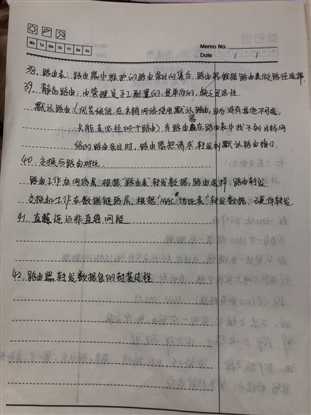 Mo Tu We Th Fr Sa Su
Memo No.
Date / /
38. 路由表：路由器中维护的路由条目的集合，路由器根据路由表做路径选择
39. 静态路由：由管理员手工配置的，是单向的，缺乏灵活性
默认路由：当末梢网络使用默认路由，
路由器在路由表中找不到目标网
络的路由条目时，路由器把请求转发到默认路由接口
40. 交换与路由对比
路由工作在网络层，根据“路由表”转发数据，路由选择，路由转发
交换机工作在数据链路层，根据“MAC地址表”转发数据，硬件转发
41. 直连还非直连网段
42. 路由器转发数据包的封装过程